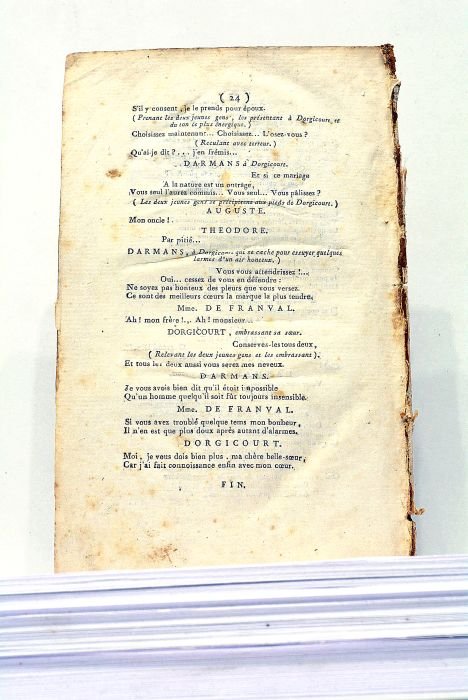 ( 24 )
S'il y consent, je le prends pour époux.
( Prenant les deux jeunes gens, les présentant à Dorgicourt, et
du ton le plus énergique. )
Choisissez maintenant... Choisissez... L'osez-vous ?
( Reculant avec terreur. )
Qu'ai-je dit ?... j'en frémis...
DARMANS à Dorgicourt.
Et si ce mariage
A la nature est un outrage,
Vous seul l'aurez commis... Vous seul... Vous pâlissez ?
( Les deux jeunes gens se précipitent aux pieds de Dorgicourt. )
AUGUSTE.
Mon oncle !
THEODORE.
Par pitié...
DARMANS, à Dorgicourt qui se cache pour essuyer quelques
larmes d'un air honteux. )
Vous vous attendrissez !...
Oui... cessez de vous en défendre :
Ne soyez pas honteux des pleurs que vous versez.
Ce sont des meilleurs cœurs la marque la plus tendre.
Mme. DE FRANVAL.
Ah ! mon frère !... Ah ! monsieur...
DORGICOURT, embrassant sa sœur.
Conservez-les tous deux,
( Relevant les deux jeunes gens et les embrassant ).
Et tous les deux aussi vous serez mes neveux.
DARMANS.
Je vous avois bien dit qu'il étoit impossible
Qu'un homme quelqu'il soit fût toujours insensible.
Mme. DE FRANVAL.
Si vous avez troublé quelque tems mon bonheur,
Il n'en est que plus doux après autant d'alarmes.
DORGICOURT.
Moi, je vous dois bien plus, ma chère belle-sœur,
Car j'ai fait connoissance enfin avec mon cœur.
FIN.